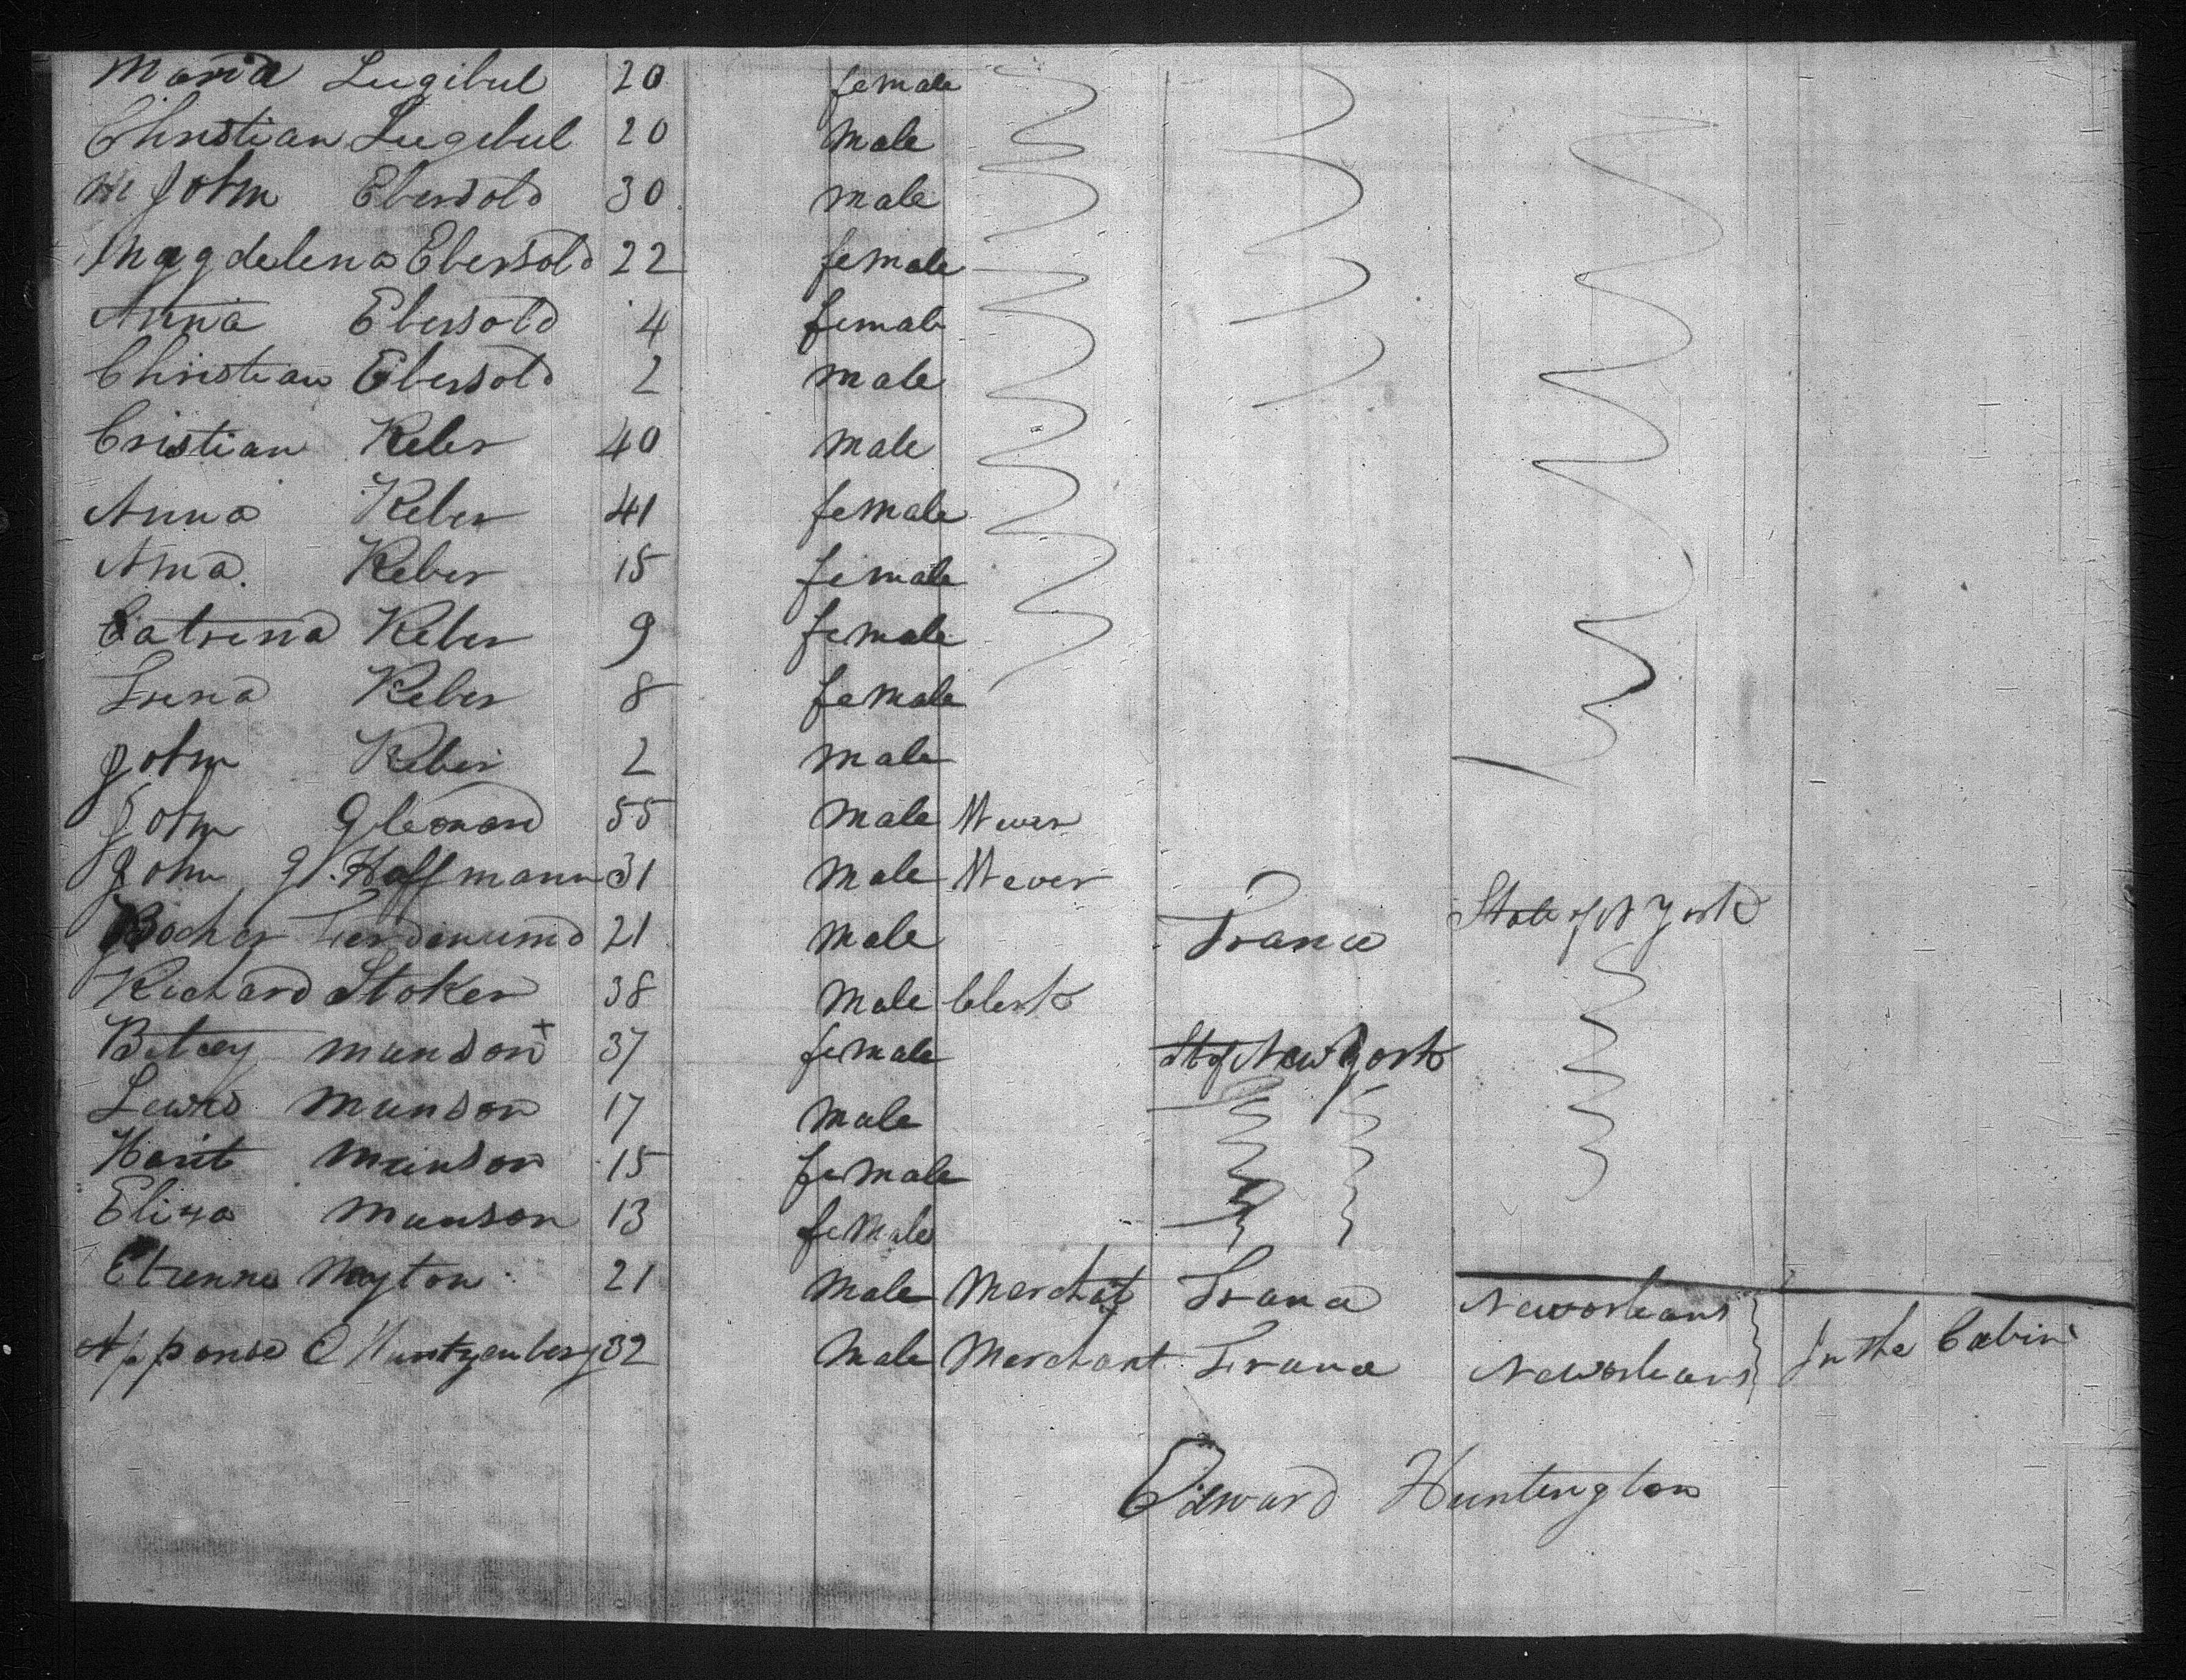 Maria Lugibul 20 female
Christian Lugibul 20 male
John Ebersold 30 male
Magdelena Ebersold 22 female
Anna Ebersold 4 female
Christian Ebersold 2 male
Cristian Reber 40 male
Anna Reber 41 female
Anna Reber 15 female
Catrina Reber 9 female
Reber 8 female
John Reber 2 male
John 55 male Wever
John G. Hoffmann 31 male Wever
21 male France State of N York
Richard Stoker 38 male Clerk
Betcey Munson + 37 female St of New York
Lewis Munson 17 male
Munson 15 female
Eliza Munson 13 female
Etienne 21 male Merchat France Neworleans
32 male Merchant France Neworleans In the Cabin
Edward Huntington